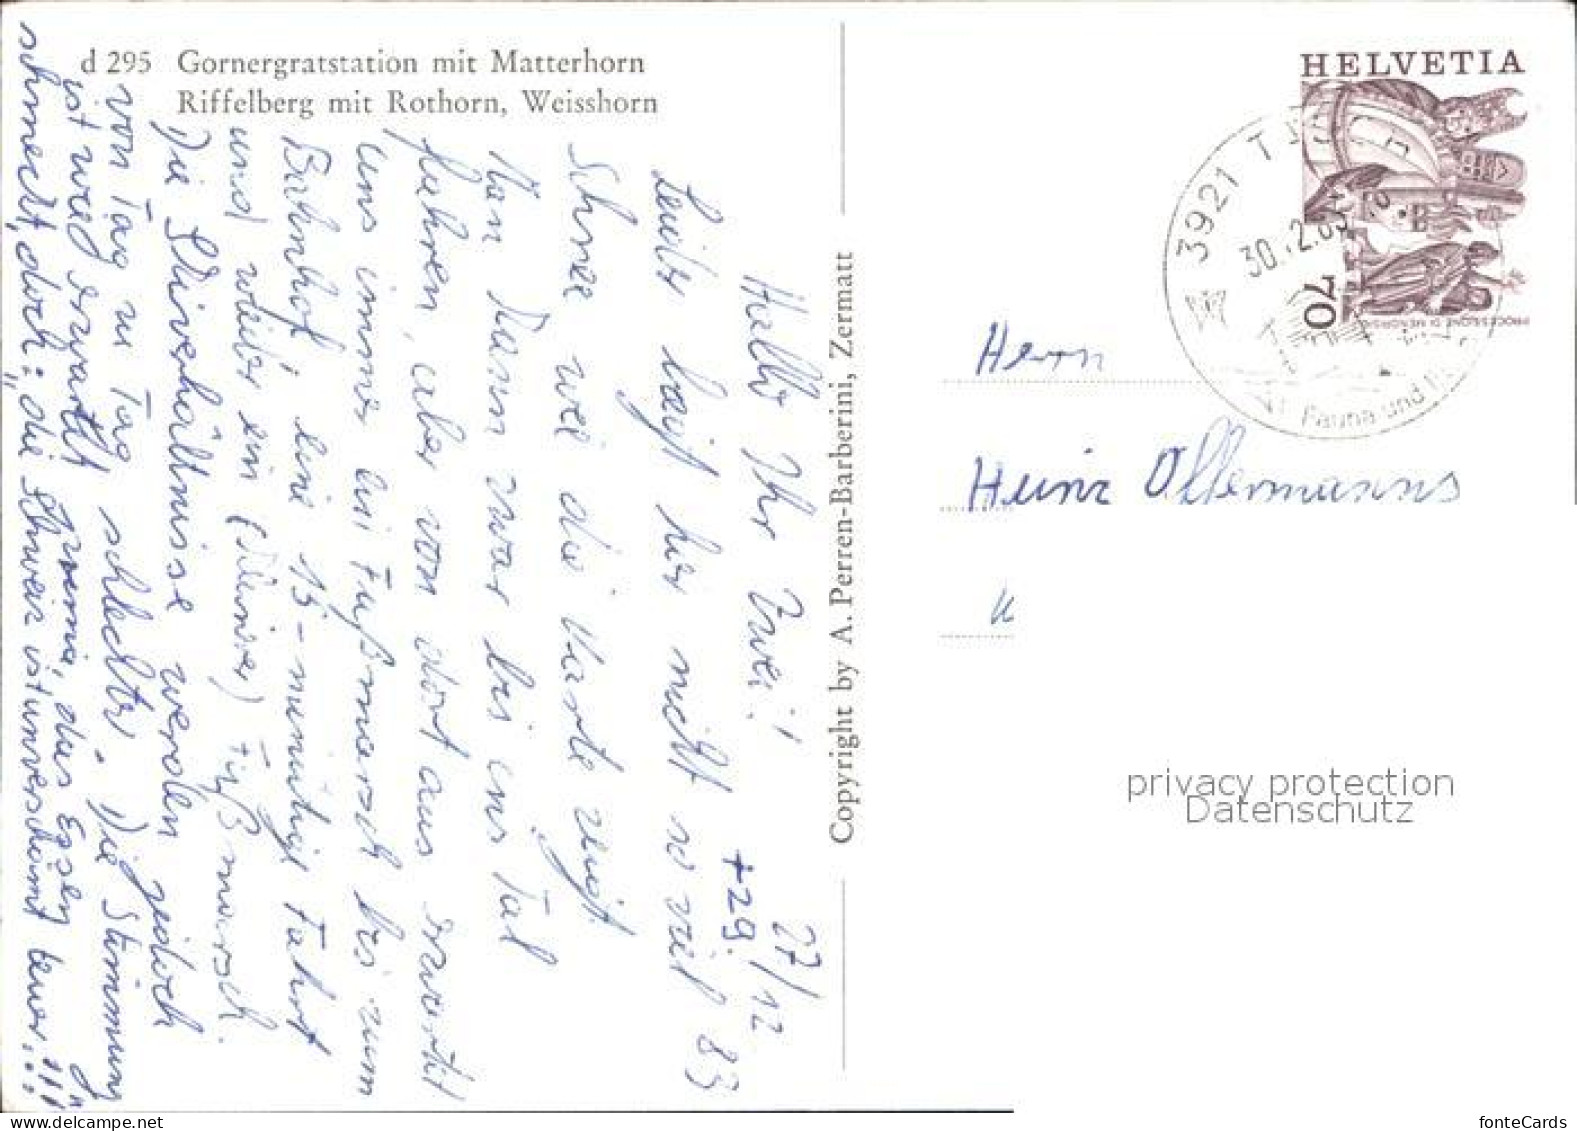 d 295 Gornergratstation mit Matterhorn
Riffelberg mit Rothorn, Weisshorn
27/12
+29. 83
Hallo Ihr Zwei!
Leider liegt hier nicht so viel
Schnee wie die Karte zeigt.
Man kann zwar bis ins Tal
fahren, aber von dort aus erwartet
uns immer ein Fußmarsch bis zum
Bahnhof, eine 15-minütige Fahrt
und wieder ein Fußmarsch.
Die Skiverhältnisse werden jedoch
von Tag zu Tag schlechter. Die Stimmung
ist wie erwartet prima, das Essen
schmeckt, doch: "die Schweiz ist unverschämt teuer...!!!"
Copyright by A. Perren-Barberini, Zermatt
HELVETIA
70
PROCESSIONE DI MENDRISIO
3921 T
30.12.83
Fauna und
Herrn
Heinz Offermanns
privacy protection
Datenschutz
fonteCards